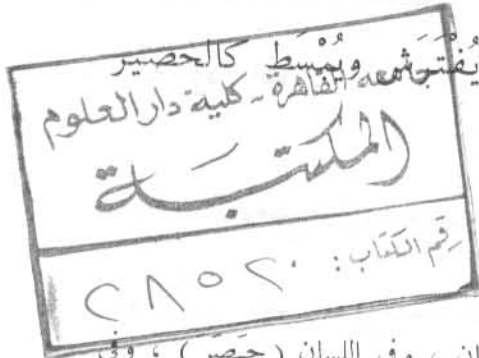 يُفْتَح ويُبْسَط كالحصير
جامعة القاهرة - كلية دار العلوم
المكتبة
رقم الكتاب: ٢٨٥٢٠
وفى اللسان ( حصر ) ، وفى